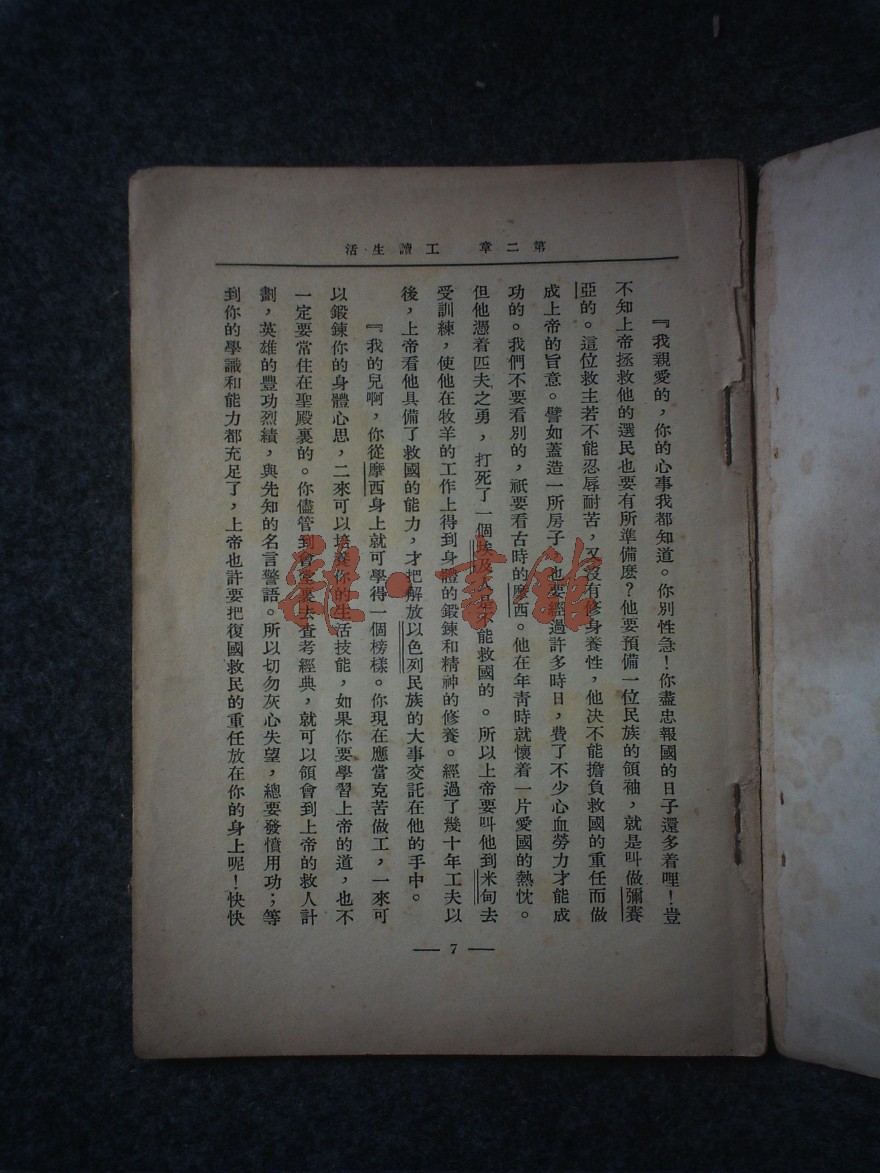 第二章 工讀生活
『我親愛的，你的心事我都知道。你別性急！你盡忠報國的日子還多着哩！豈
不知上帝拯救他的選民也要有所準備麽？他要預備一位民族的領袖，就是叫做彌賽
亞的。這位救主若不能忍辱耐苦，又沒有修身養性，他決不能擔負救國的重任而做
成上帝的旨意。譬如蓋造一所房子，也要經過許多時日，費了不少心血勞力才能成
功的。我們不要看別的，祇要看古時的摩西。他在年靑時就懷着一片愛國的熱忱。
但他憑着匹夫之勇，打死了一個埃及人是不能救國的。所以上帝要叫他到米甸去
受訓練，使他在牧羊的工作上得到身體的鍛鍊和精神的修養。經過了幾十年工夫以
後，上帝看他具備了救國的能力，才把解放以色列民族的大事交託在他的手中。
『我的兒啊，你從摩西身上就可學得一個榜樣。你現在應當克苦做工，一來可
以鍛鍊你的身體心思，二來可以培養你的生活技能，如果你要學習上帝的道，也不
一定要常住在聖殿裏的。你儘管到會堂裏去查考經典，就可以領會到上帝的救人計
劃，英雄的豐功烈績，與先知的名言警語。所以切勿灰心失望，總要發憤用功；等
到你的學識和能力都充足了，上帝也許要把復國救民的重任放在你的身上呢！快快
— 7 —
雜·書館